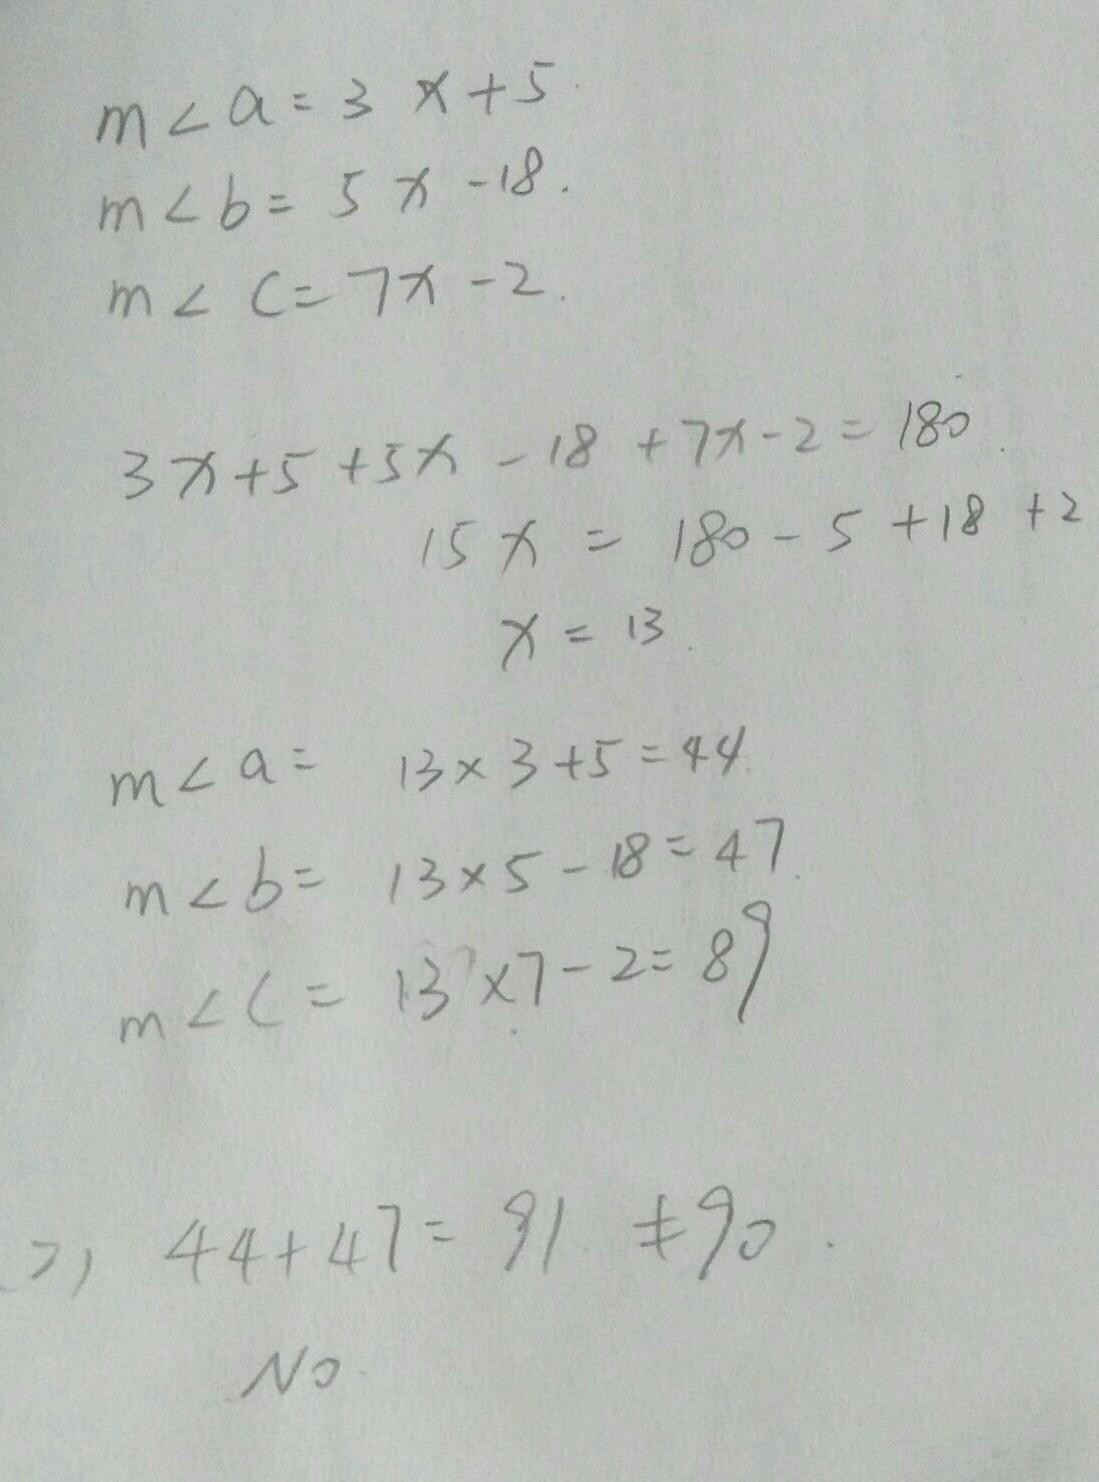 m<a=3x+5.
m<b=5x-18.
m<c=7x-2.
3x+5+5x-18+7x-2=180.
15x=180-5+18+2
x=13.
m<a=13×3+5=44.
m<b=13×5-18=47.
m<c=13×7-2=89
2) 44+47=91≠90.
No.